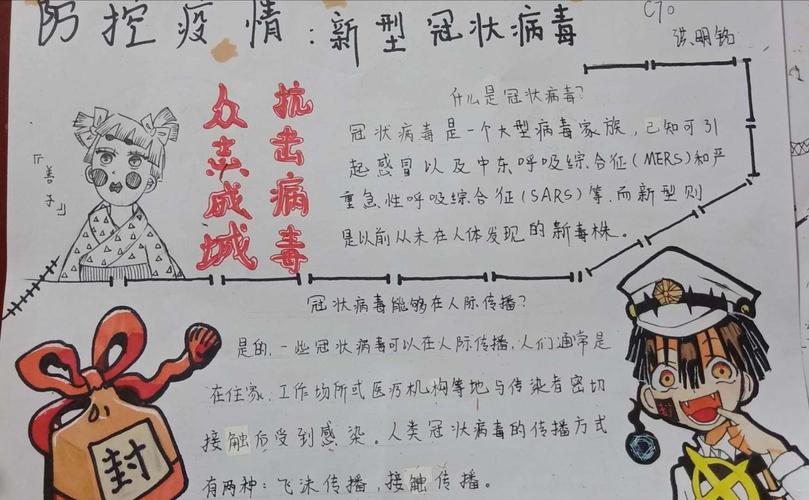 防控疫情：新型冠状病毒
C70
洪明铭
抗击病毒
众志成城
『善子』
什么是冠状病毒？
冠状病毒是一个大型病毒家族，已知可引
起感冒以及中东呼吸综合征（MERS）和严
重急性呼吸综合征（SARS）等．而新型则
是以前从未在人体发现的新毒株。
冠状病毒能够在人际传播？
是的，一些冠状病毒可以在人际传播，人们通常是
在住家、工作场所或医疗机构等地与传染者密切
接触后受到感染。人类冠状病毒的传播方式
有两种：飞沫传播，接触传播。
封